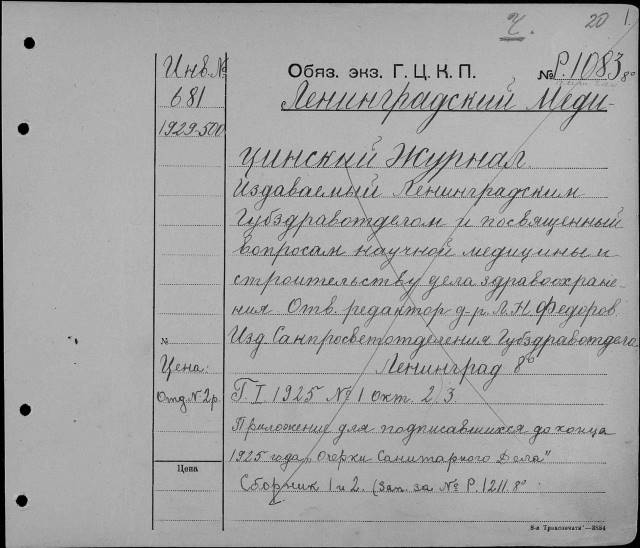 Ч. 20 1.
Инв. № Обяз. экз. Г. Ц. К. П. № Р.1083 8°
681 Ленинградский Меди-
1929-500
цинский Журнал
Издаваемый Ленинградским
Губздравотделом и посвященный
вопросам научной медицины и
строительству дела здравоохране-
ния Отв. редактор д-р Л. Н. Федоров.
№ Изд Санпросветотделения Губздравотдела
Цена: Ленинград 8°
Отд. № 2 р. Г. I 1925 № 1 окт. 2. 3.
Приложение для подписавшихся до конца
1925 года „Очерки Санитарного Дела"
Цена Сборник 1 и 2. (Зап. за № Р.1211. 8°
8-я „Транспечати"—3554